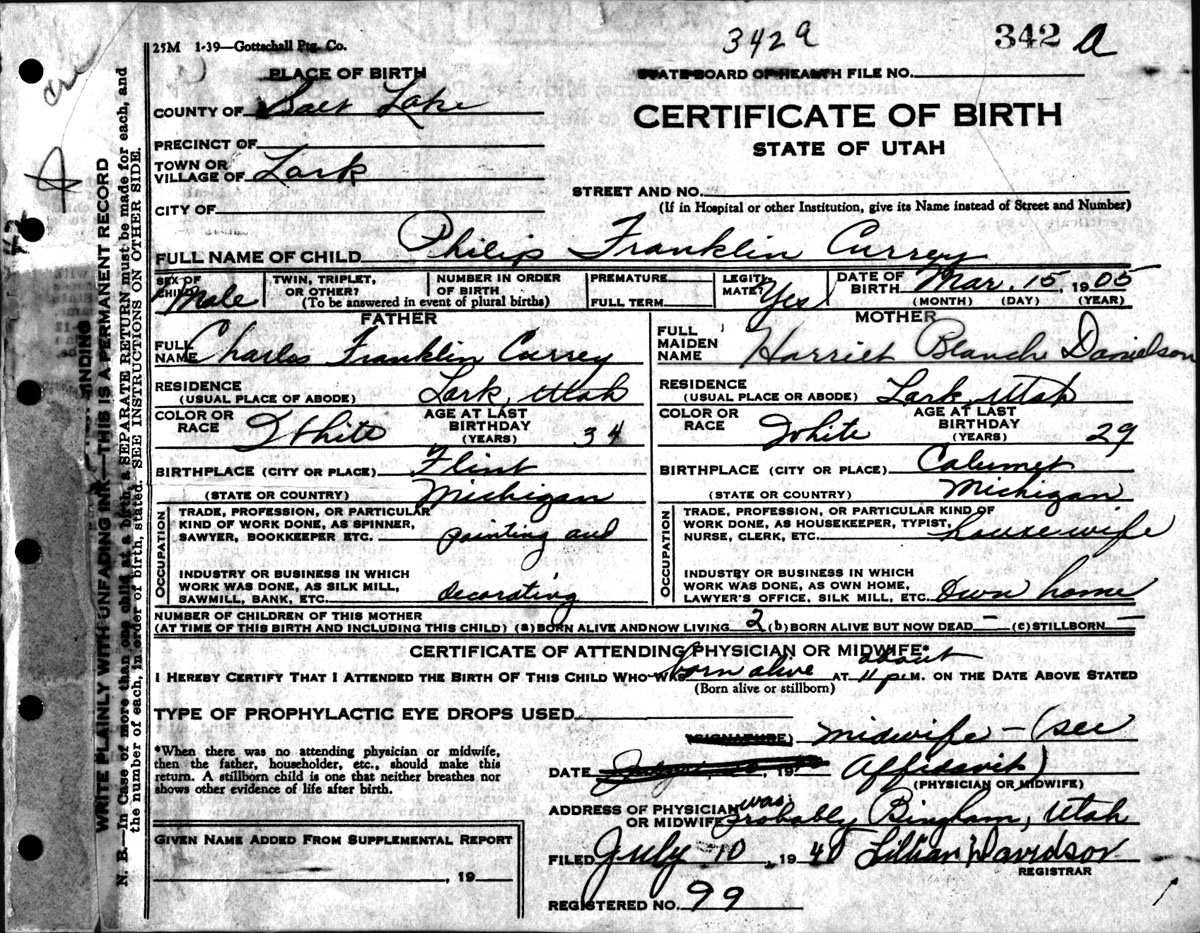 25M 1-39—Gottschall Ptg. Co.
342a
342 a
PLACE OF BIRTH
STATE BOARD OF HEALTH FILE NO.
COUNTY OF Salt Lake
CERTIFICATE OF BIRTH
PRECINCT OF
STATE OF UTAH
TOWN OR
VILLAGE OF Lark
STREET AND NO.
CITY OF
(If in Hospital or other Institution, give its Name instead of Street and Number)
FULL NAME OF CHILD Philip Franklin Currey
SEX OF
CHILD Male
TWIN, TRIPLET,
OR OTHER?
NUMBER IN ORDER
OF BIRTH
(To be answered in event of plural births)
PREMATURE
FULL TERM
LEGITI-
MATE? Yes
DATE OF
BIRTH Mar. 15, 1905
(MONTH) (DAY) (YEAR)
FATHER
FULL
NAME Charles Franklin Currey
RESIDENCE
(USUAL PLACE OF ABODE) Lark, Utah
COLOR OR
RACE White
AGE AT LAST
BIRTHDAY
(YEARS) 34
BIRTHPLACE (CITY OR PLACE) Flint
(STATE OR COUNTRY) Michigan
OCCUPATION
TRADE, PROFESSION, OR PARTICULAR
KIND OF WORK DONE, AS SPINNER,
SAWYER, BOOKKEEPER ETC. painting and
INDUSTRY OR BUSINESS IN WHICH
WORK WAS DONE, AS SILK MILL,
SAWMILL, BANK, ETC. decorating
MOTHER
FULL
MAIDEN
NAME Harriet Blanche Danielson
RESIDENCE
(USUAL PLACE OR ABODE) Lark, Utah
COLOR OR
RACE White
AGE AT LAST
BIRTHDAY
(YEARS) 29
BIRTHPLACE (CITY OR PLACE) Calumet
(STATE OR COUNTRY) Michigan
OCCUPATION
TRADE, PROFESSION, OR PARTICULAR KIND OF
WORK DONE, AS HOUSEKEEPER, TYPIST,
NURSE, CLERK, ETC. housewife
INDUSTRY OR BUSINESS IN WHICH
WORK WAS DONE, AS OWN HOME,
LAWYER'S OFFICE, SILK MILL, ETC. Own home
NUMBER OF CHILDREN OF THIS MOTHER
(AT TIME OF THIS BIRTH AND INCLUDING THIS CHILD) (a) BORN ALIVE AND NOW LIVING 2 (b) BORN ALIVE BUT NOW DEAD — (c) STILLBORN —
CERTIFICATE OF ATTENDING PHYSICIAN OR MIDWIFE*
about
I HEREBY CERTIFY THAT I ATTENDED THE BIRTH OF THIS CHILD WHO WAS born alive AT 11 p.M. ON THE DATE ABOVE STATED
(Born alive or stillborn)
TYPE OF PROPHYLACTIC EYE DROPS USED
(SIGNATURE) midwife — (see
*When there was no attending physician or midwife,
then the father, householder, etc., should make this
return. A stillborn child is one that neither breathes nor
shows other evidence of life after birth.
DATE , 19 Affidavit)
(PHYSICIAN OR MIDWIFE)
ADDRESS OF PHYSICIAN was
OR MIDWIFE Probably Bingham, Utah
GIVEN NAME ADDED FROM SUPPLEMENTAL REPORT
, 19
FILED July 10, 1940 Lillian Davidson
REGISTRAR
REGISTERED NO. 99
WRITE PLAINLY WITH UNFADING INK—THIS IS A PERMANENT RECORD
N. B.—In Case of more than one child at a birth, a SEPARATE RETURN must be made for each, and
the number of each, in order of birth, stated. SEE INSTRUCTIONS ON OTHER SIDE.